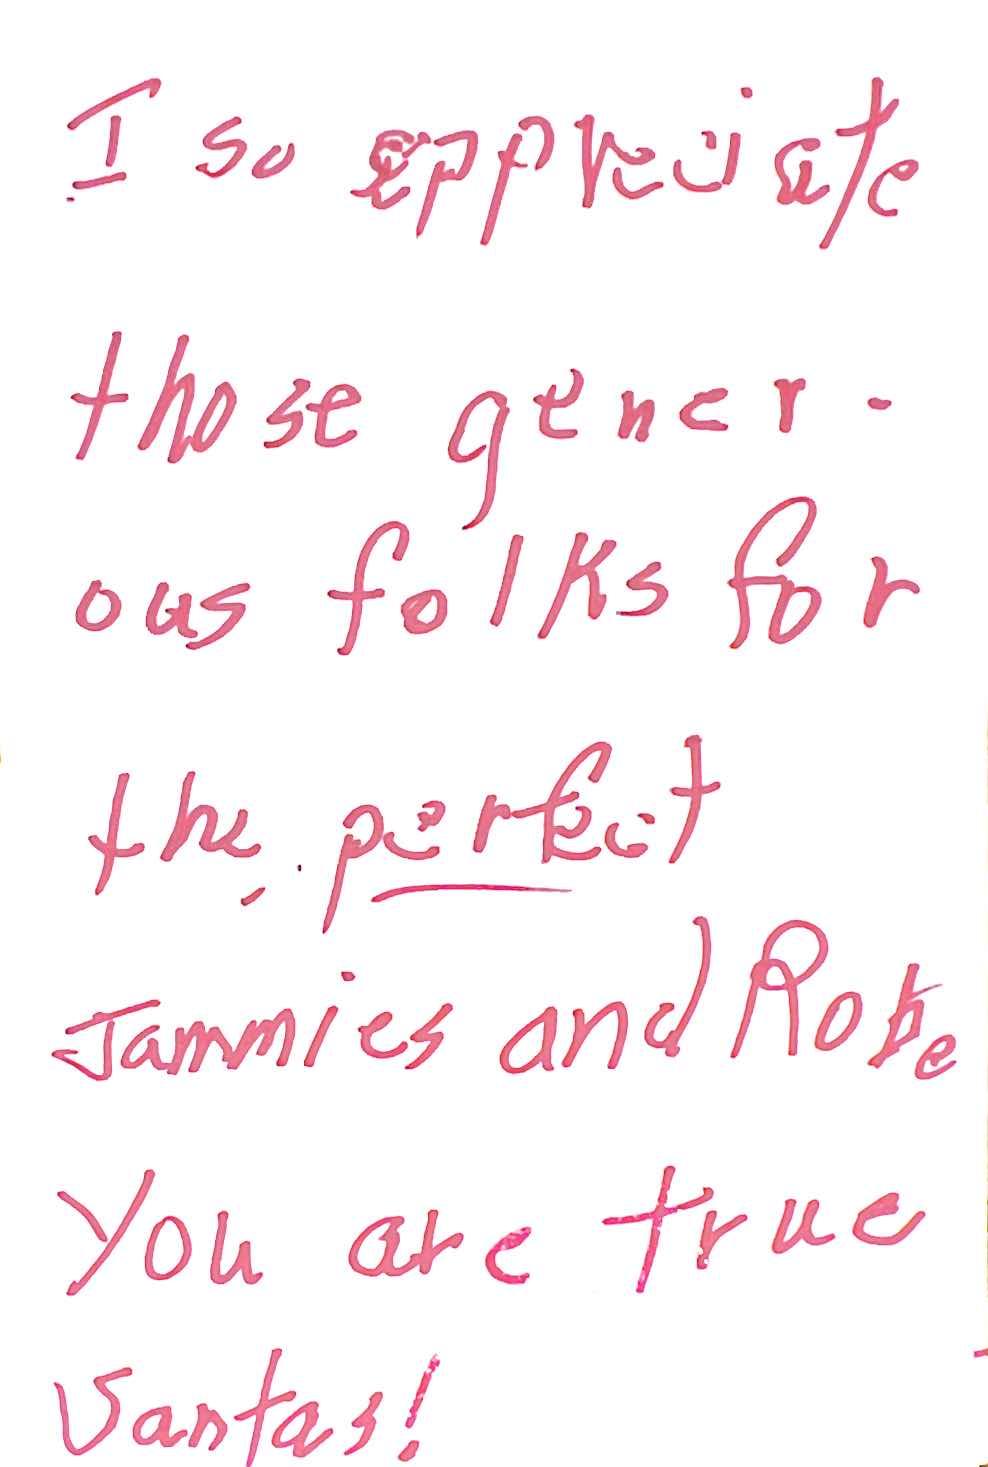 I so appreciate
those gener-
ous folks for
the perfect
Jammies and Robe
You are true
Santas!